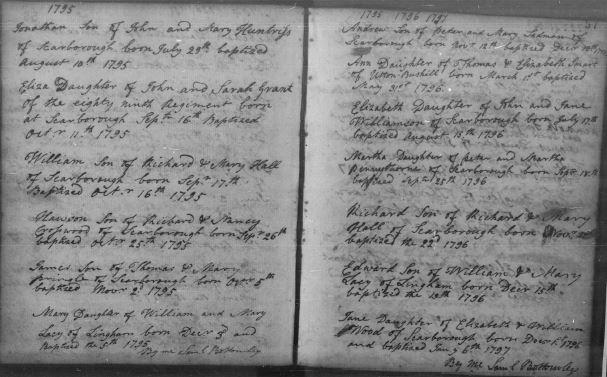 1795
Jonathan Son of John and Mary
of Scarborough born July 29th baptized
August 10th 1795
Eliza Daughter of John and Sarah Grant
of the eighty ninth Regiment born
at Scarborough Sept.r 16th Baptized
Oct.r 11.th 1795
William Son of Richard & Mary Hall
of Scarborough born Sep.r 17.th
Baptized Oct.r 16th 1795
Son of Richard & Nancy
of Scarborough born Sep.r 26th
baptized Oct.r 25th 1795
James Son of Thomas & Mary
of Scarborough born Oct.r 5th
baptized Nov.r 2d 1795
Mary Daughter of William and Mary
Lacy of Lingham born Dec.r 3d and
Baptized the 5th 1795
By me Saml Bottomley
1795 1796 1797
Andrew Son of Peter and Mary
Scarborough born Nov.r 12th baptized Dec.r
Ann Daughter of Thomas & Elizabeth
of Utton Bushill born March 1st baptized
May 21st 1796
Elizabeth Daughter of John and Jane
Williamson of Scarborough born July 17th
baptized August 15th 1796
Martha Daughter of Peter and Martha
of Scarborough born Sept.r 18th
baptized Sept.r 25th 1796
Richard Son of Richard & Mary
Hall of Scarborough born Nov.r
baptized the 22d 1796
Edward Son of William & Mary
Lacy of Lingham born Dec.r
baptized the 1796
Jane Daughter of Elizabeth & William
Wood of Scarborough born Dec.r 1796
and baptized Jan.y 6th 1797
By Me Saml Bottomley